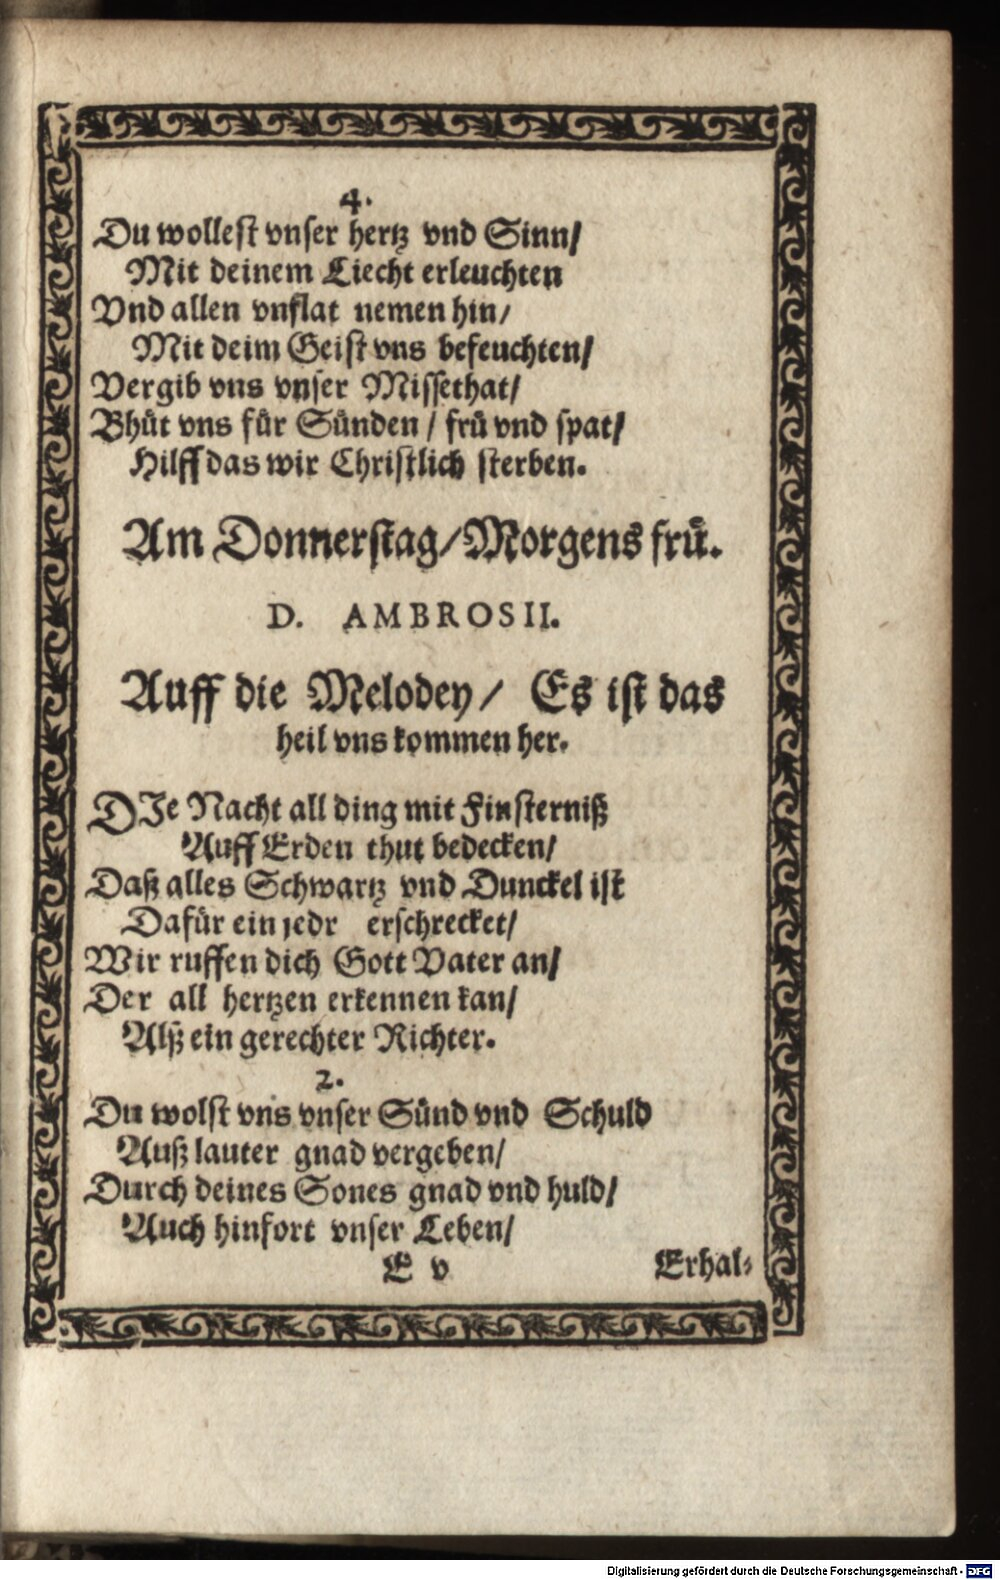 4.
Du wollest vnser hertz vnd Sinn/
Mit deinem Liecht erleuchten
Vnd allen vnflat nemen hin/
Mit deim Geist vns befeuchten/
Vergib vns vnser Missethat/
Bhüt vns für Sünden / frü vnd spat/
Hilff das wir Christlich sterben.
Am Donnerstag/Morgens frü.
D. AMBROSII.
Auff die Melodey/ Es ist das
heil vns kommen her.
DJe Nacht all ding mit Finsterniß
Auff Erden thut bedecken/
Daß alles Schwartz vnd Dunckel ist
Dafür ein jedr erschrecket/
Wir ruffen dich Gott Vater an/
Der all hertzen erkennen kan/
Alß ein gerechter Richter.
2.
Du wolst vns vnser Sünd vnd Schuld
Auß lauter gnad vergeben/
Durch deines Sones gnad vnd huld/
Auch hinfort vnser Leben/
E v Erhal-
Digitalisierung gefördert durch die Deutsche Forschungsgemeinschaft - DFG